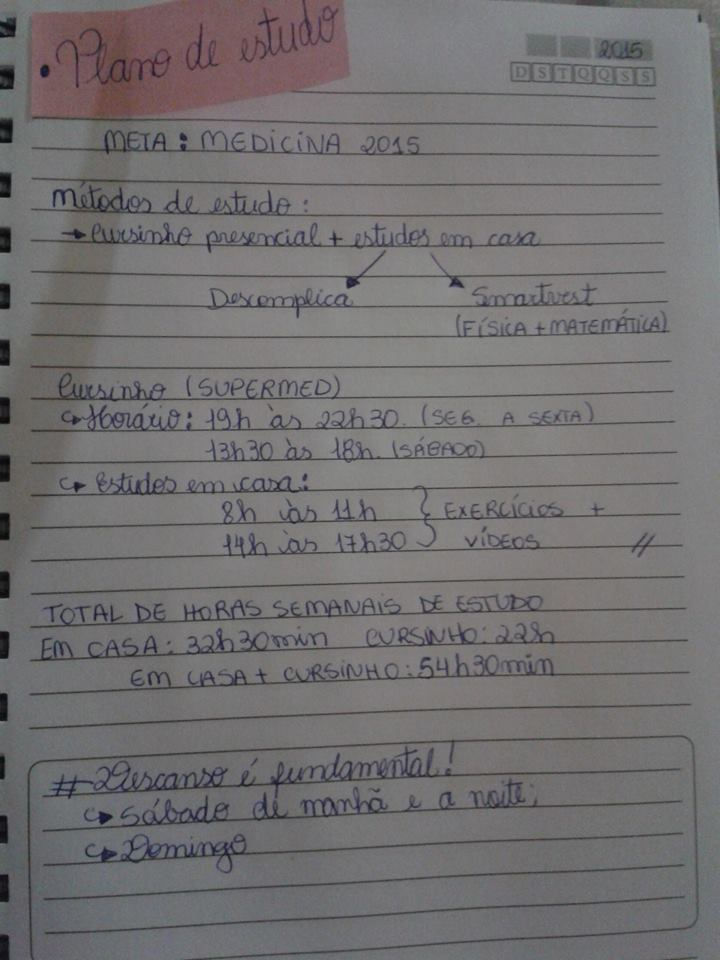 • Plano de estudo
2015
D S T Q Q S S
META: MEDICINA 2015
Métodos de estudo:
→ Cursinho presencial + estudos em casa
Descomplica Smartvest
(FÍSICA + MATEMÁTICA)
Cursinho (SUPERMED)
↪ Horário: 19h às 22h30. (SEG. A SEXTA)
13h30 às 18h. (SÁBADO)
↪ Estudos em casa:
8h às 11h } EXERCÍCIOS +
14h às 17h30 } VÍDEOS //
TOTAL DE HORAS SEMANAIS DE ESTUDO
EM CASA: 32h30min CURSINHO: 22h
EM CASA + CURSINHO: 54h30min
# Descanso é fundamental!
↪ Sábado de manhã e a noite;
↪ Domingo